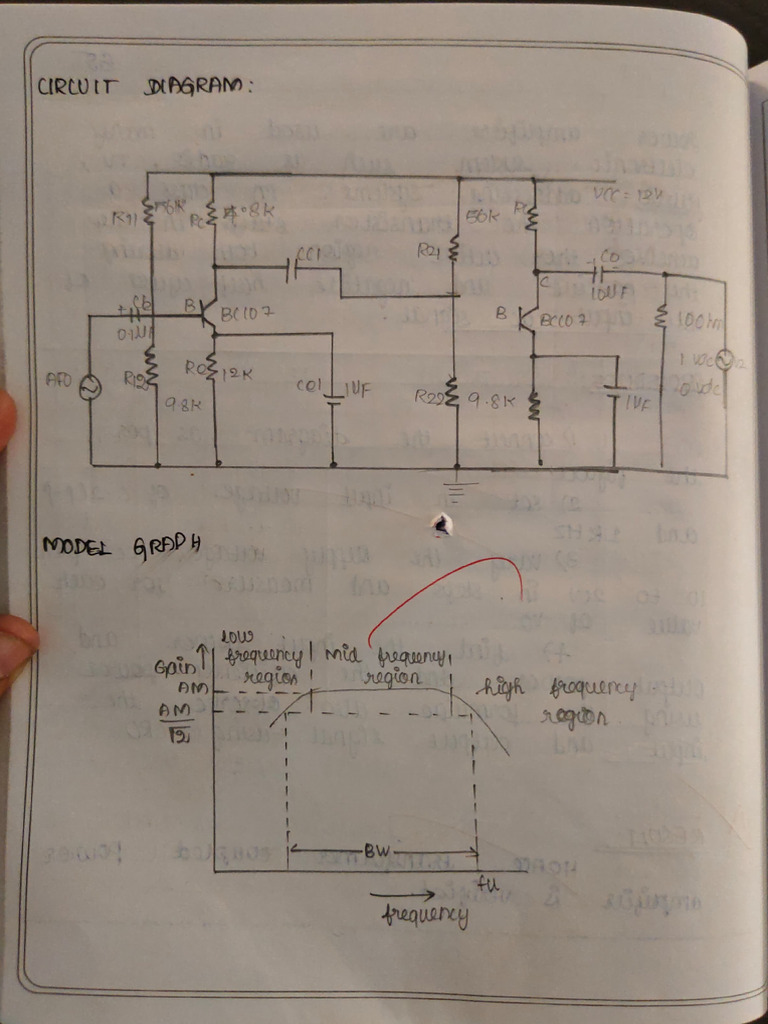 CIRCUIT DIAGRAM:
VCC = 12V
R11
56K
56K
CC1
R21
C0
C
10UF
Cb
B
BC107
B
BC107
100hm
AFO
R12
12K
CE1
1UF
R22
9.8K
1UF
9.8K
MODEL GRAPH
Gain
low
frequency
region
mid frequency
region
high frequency
region
AM
AM
√2
BW
fu
frequency